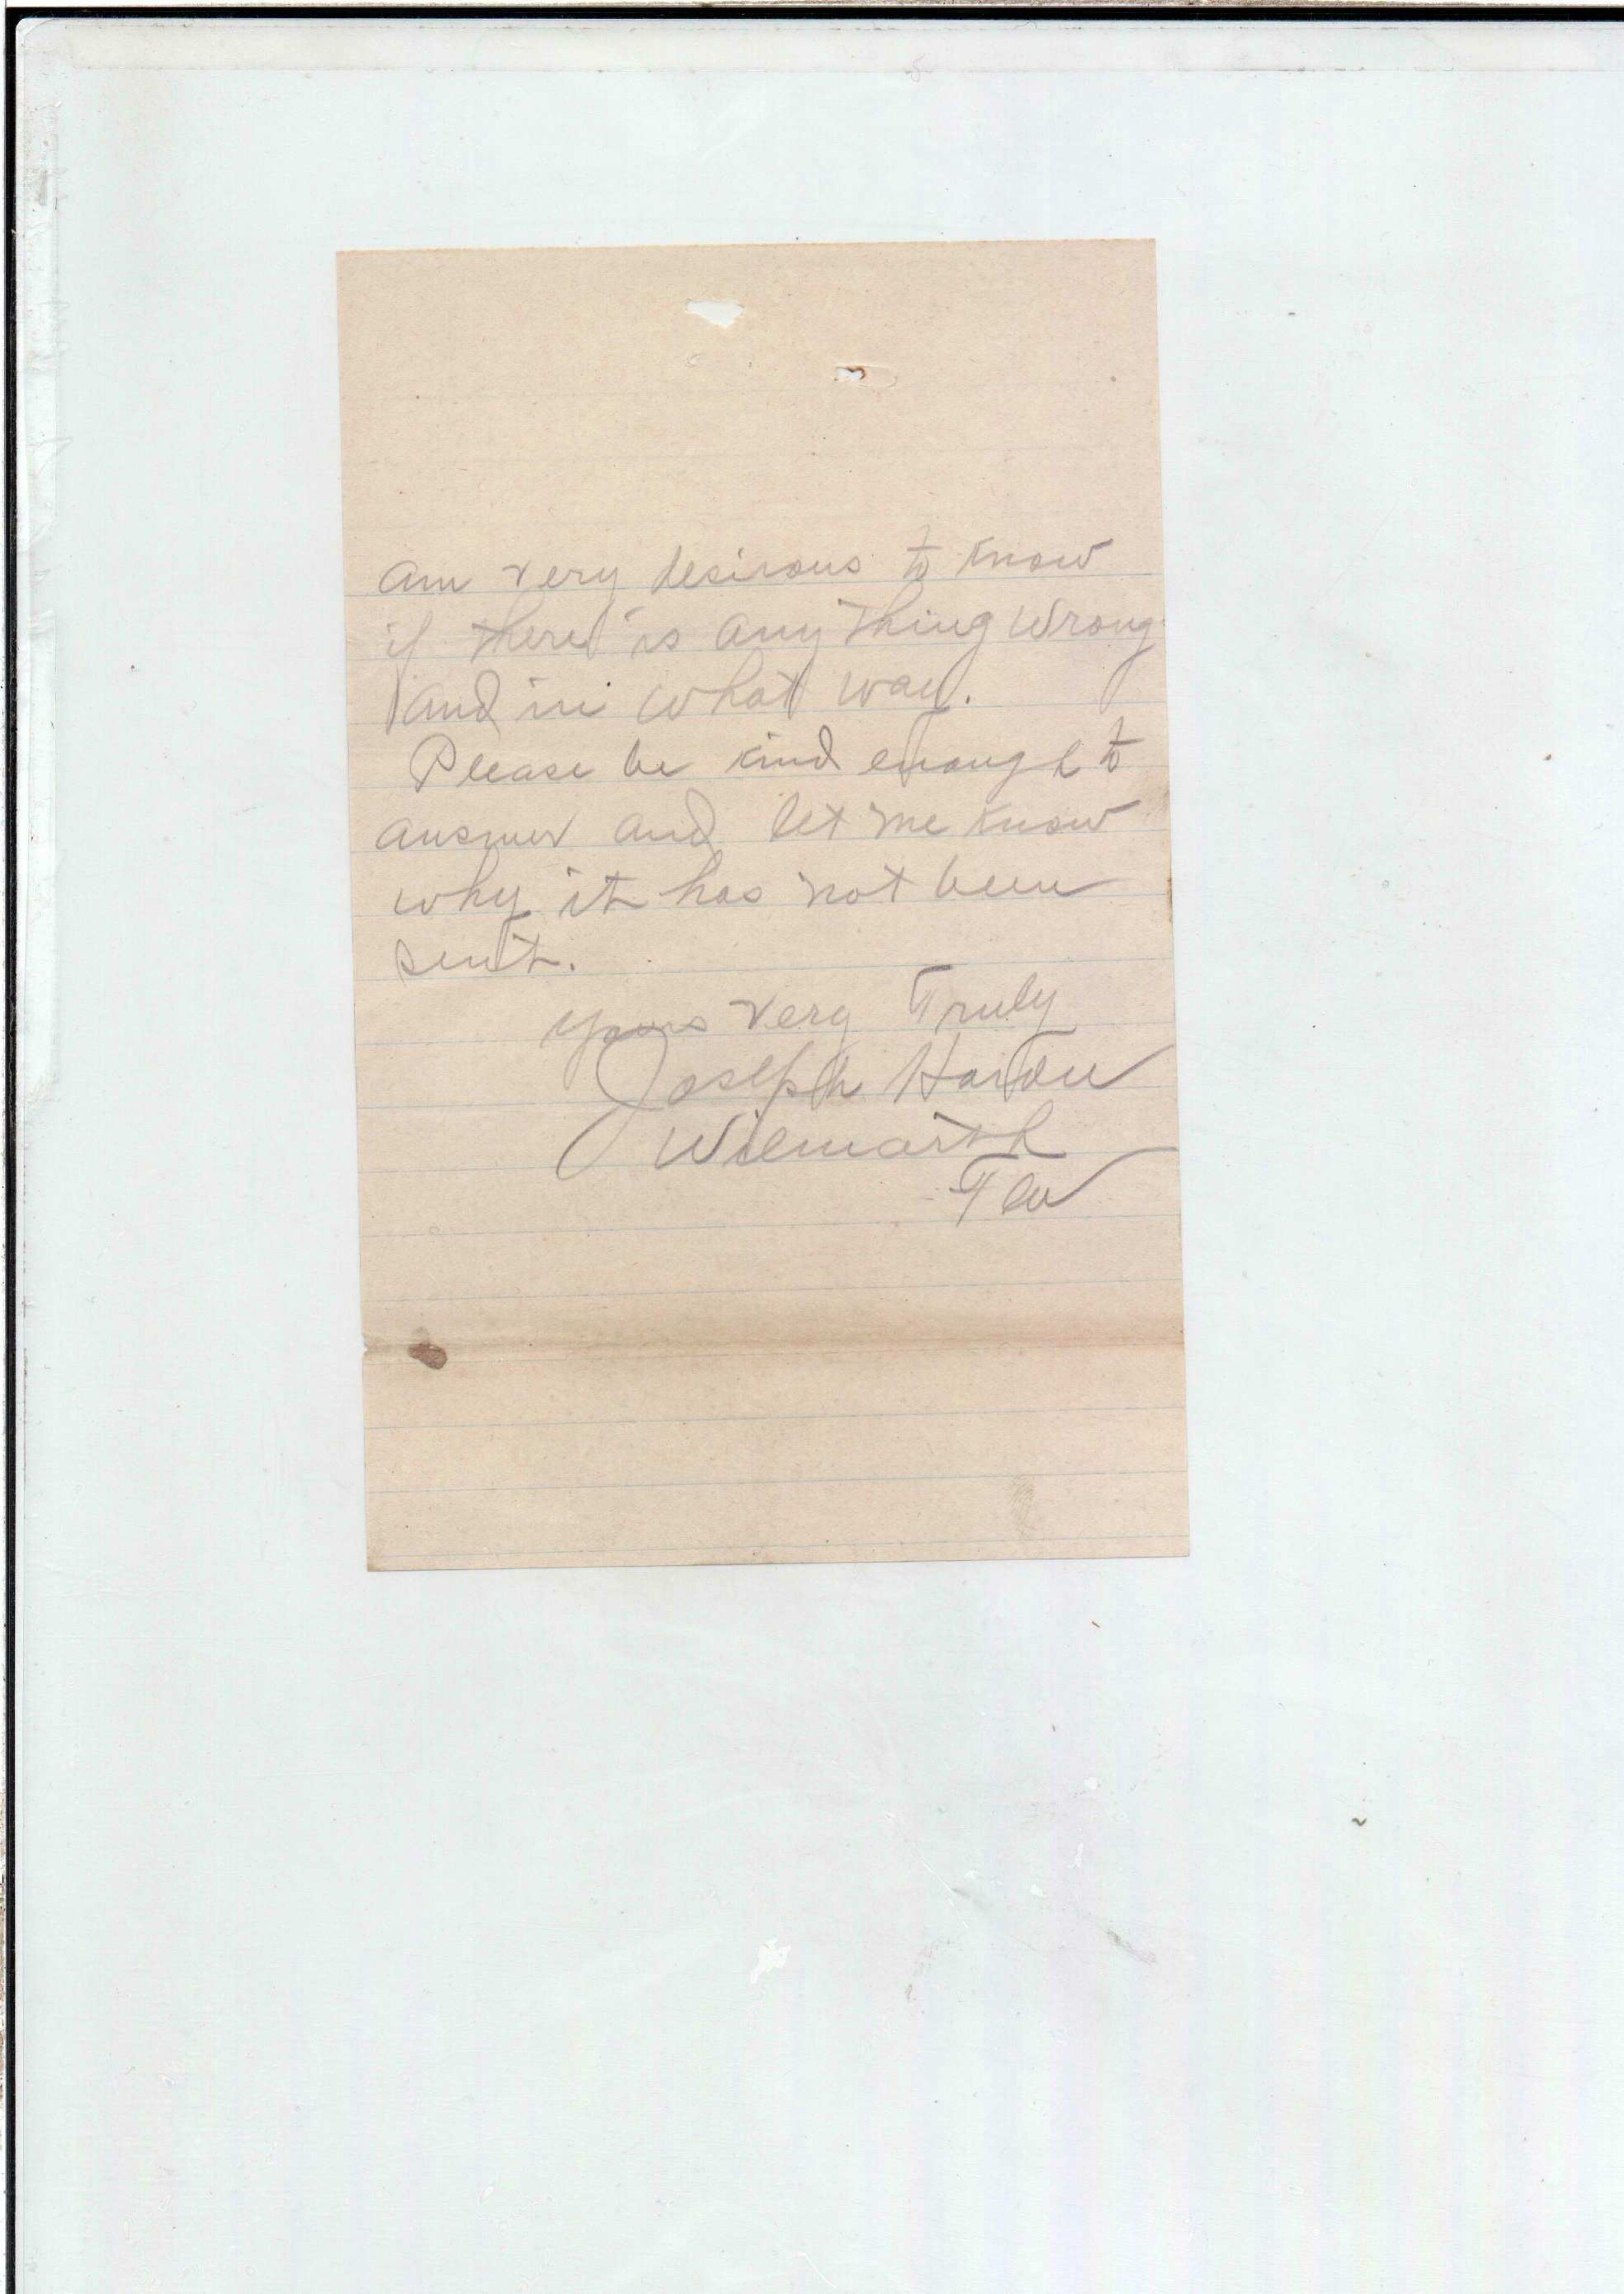 am very desirous to know
if there is any thing wrong
and in what way.
Please be kind enough to
answer and let me know
why it has not been
sent.
Yours Very Truly
Joseph
Wilmarth